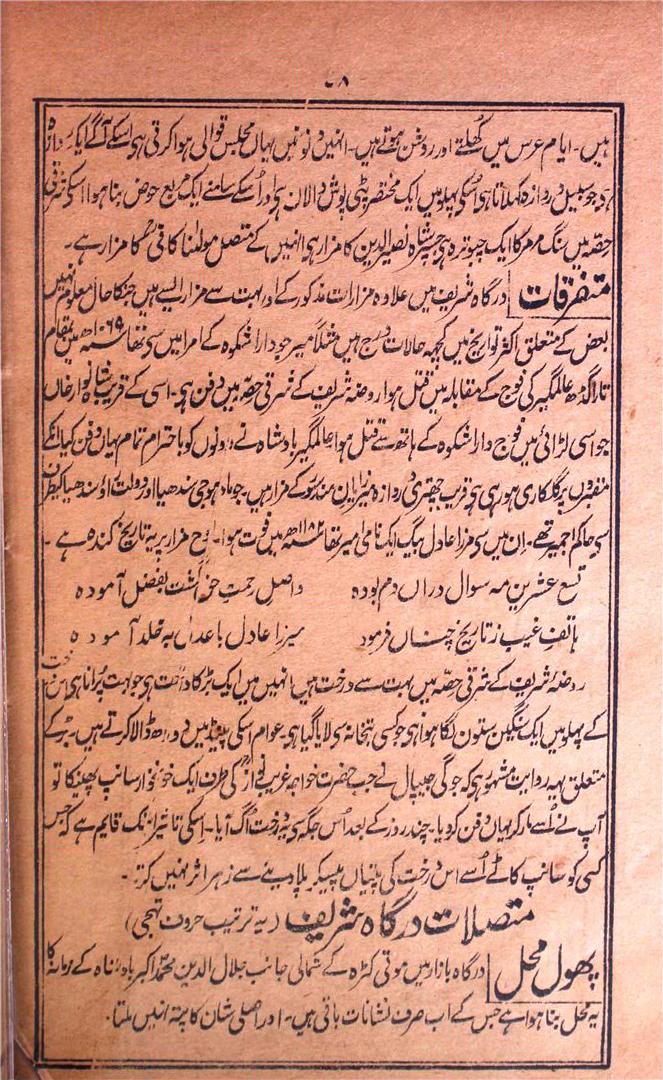 ۶۸
ہیں۔ ایام عرس میں کھلتے اور روشن ہوتے ہیں۔ انہیں دنوں میں یہاں مجلس قوالی ہوا کرتی ہی اسکے آگے ایک دروازہ
ہی جو سبیل دروازہ کہلاتا ہی اسکی پہلو میں ایک مختصر پٹی پوش دالان ہی اور اسکے سامنے ایک مربع حوض بنا ہوا اسکی شرقی
حصہ میں سنگ مرمر کا ایک چبوترہ ہی جسپر شاہ نصیر الدین کا مزار ہی انہیں کے متصل مولٰنا کافی کا مزار ہے۔
متفرقات درگاہ شریف میں علاوہ مزارات مذکور کے اور بہت سے مزار ایسے ہیں جنکا حال معلوم نہیں
بعض کے متعلق اکثر تواریخ میں کچھ حالات درج ہیں مثلاً میر جو دارا شکوہ کے امرا میں سی تھا ۱۰۶۹ھ میں بمقام
تارا گڈھ عالمگیر کی فوج کے مقابلہ میں قتل ہوا روضہ شریف کے شرقی حصہ میں دفن ہی۔ اسی کے قریب شاہنواز خاں
جو اسی لڑائی میں فوج دارا شکوہ کے ہاتھ سے قتل ہوا عالمگیر بادشاہ نے دونوں کو باحترام تمام یہاں دفن کیا انکے
مقبروں پر گلکاری ہو رہی ہی قریب چھتری دروازہ میرزایان مندسور کے مزار ہیں۔ جو مادھوجی سندھیا اور دولت راؤ سندھیا کیطرف
سی حاکم اجمیر تھے۔ ان میں سی مرزا عادل بیگ ایک نامی امیر تھا ۱۱۸۲ھ میں فوت ہوا۔ لوح مزار پر یہ تاریخ کندہ ہے۔
تسع عشرین مہ سوال دراں دم بودہ واصل رحمت حق گشت بفضل آمودہ
ہاتف غیب ز تاریخ چناں فرمود میرزا عادل باعدل بہ خلد آمودہ
روضہ شریف کے شرقی حصہ میں بہت سے درخت ہیں انہیں میں ایک بڑ کا درخت ہی جو بہت پرانا ہی اس درخت
کے پہلو میں ایک سنگین ستون لگا ہوا ہی جو کسی بتخانہ سی لایا گیا ہی عوام اسکی پیڈ میں دودھ ڈالا کرتے ہیں۔ بڑ کے
متعلق یہہ روایت مشہور ہی کہ جوگی جیپال نے جب حضرت خواجہ غریب نواز کی طرف ایک خونخوار سانپ پھینکا تو
آپ نے اُسے مار کر یہاں دفن کر دیا۔ چند روز کے بعد اُس جگہ سی یہ درخت اُگ آیا۔ اسکی تاثیر اب تک قایم ہے کہ جس
کسی کو سانپ کاٹے اُسے اس درخت کی پتیاں پیسکر پلا دینے سے زہر اثر نہیں کرتا۔
متصلات درگاہ شریف (بہ ترتیب حروف تہجی)
پھول محل درگاہ بازار میں موتی کٹرہ کے شمالی جانب جلال الدین محمد اکبر بادشاہ کے زمانہ کا
یہ محل بنا ہوا ہے جس کے اب صرف نشانات باقی ہیں۔ اور اصلی شان کا پتہ نہیں ملتا۔